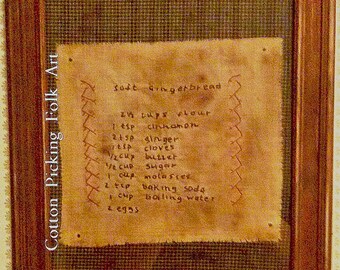 Cotton Picking Folk Art
Soft Gingerbread
2½ cups flour
1 tsp cinnamon
2 tsp ginger
½ tsp cloves
½ cup butter
½ cup sugar
1 cup molasses
2 tsp baking soda
1 cup boiling water
2 eggs